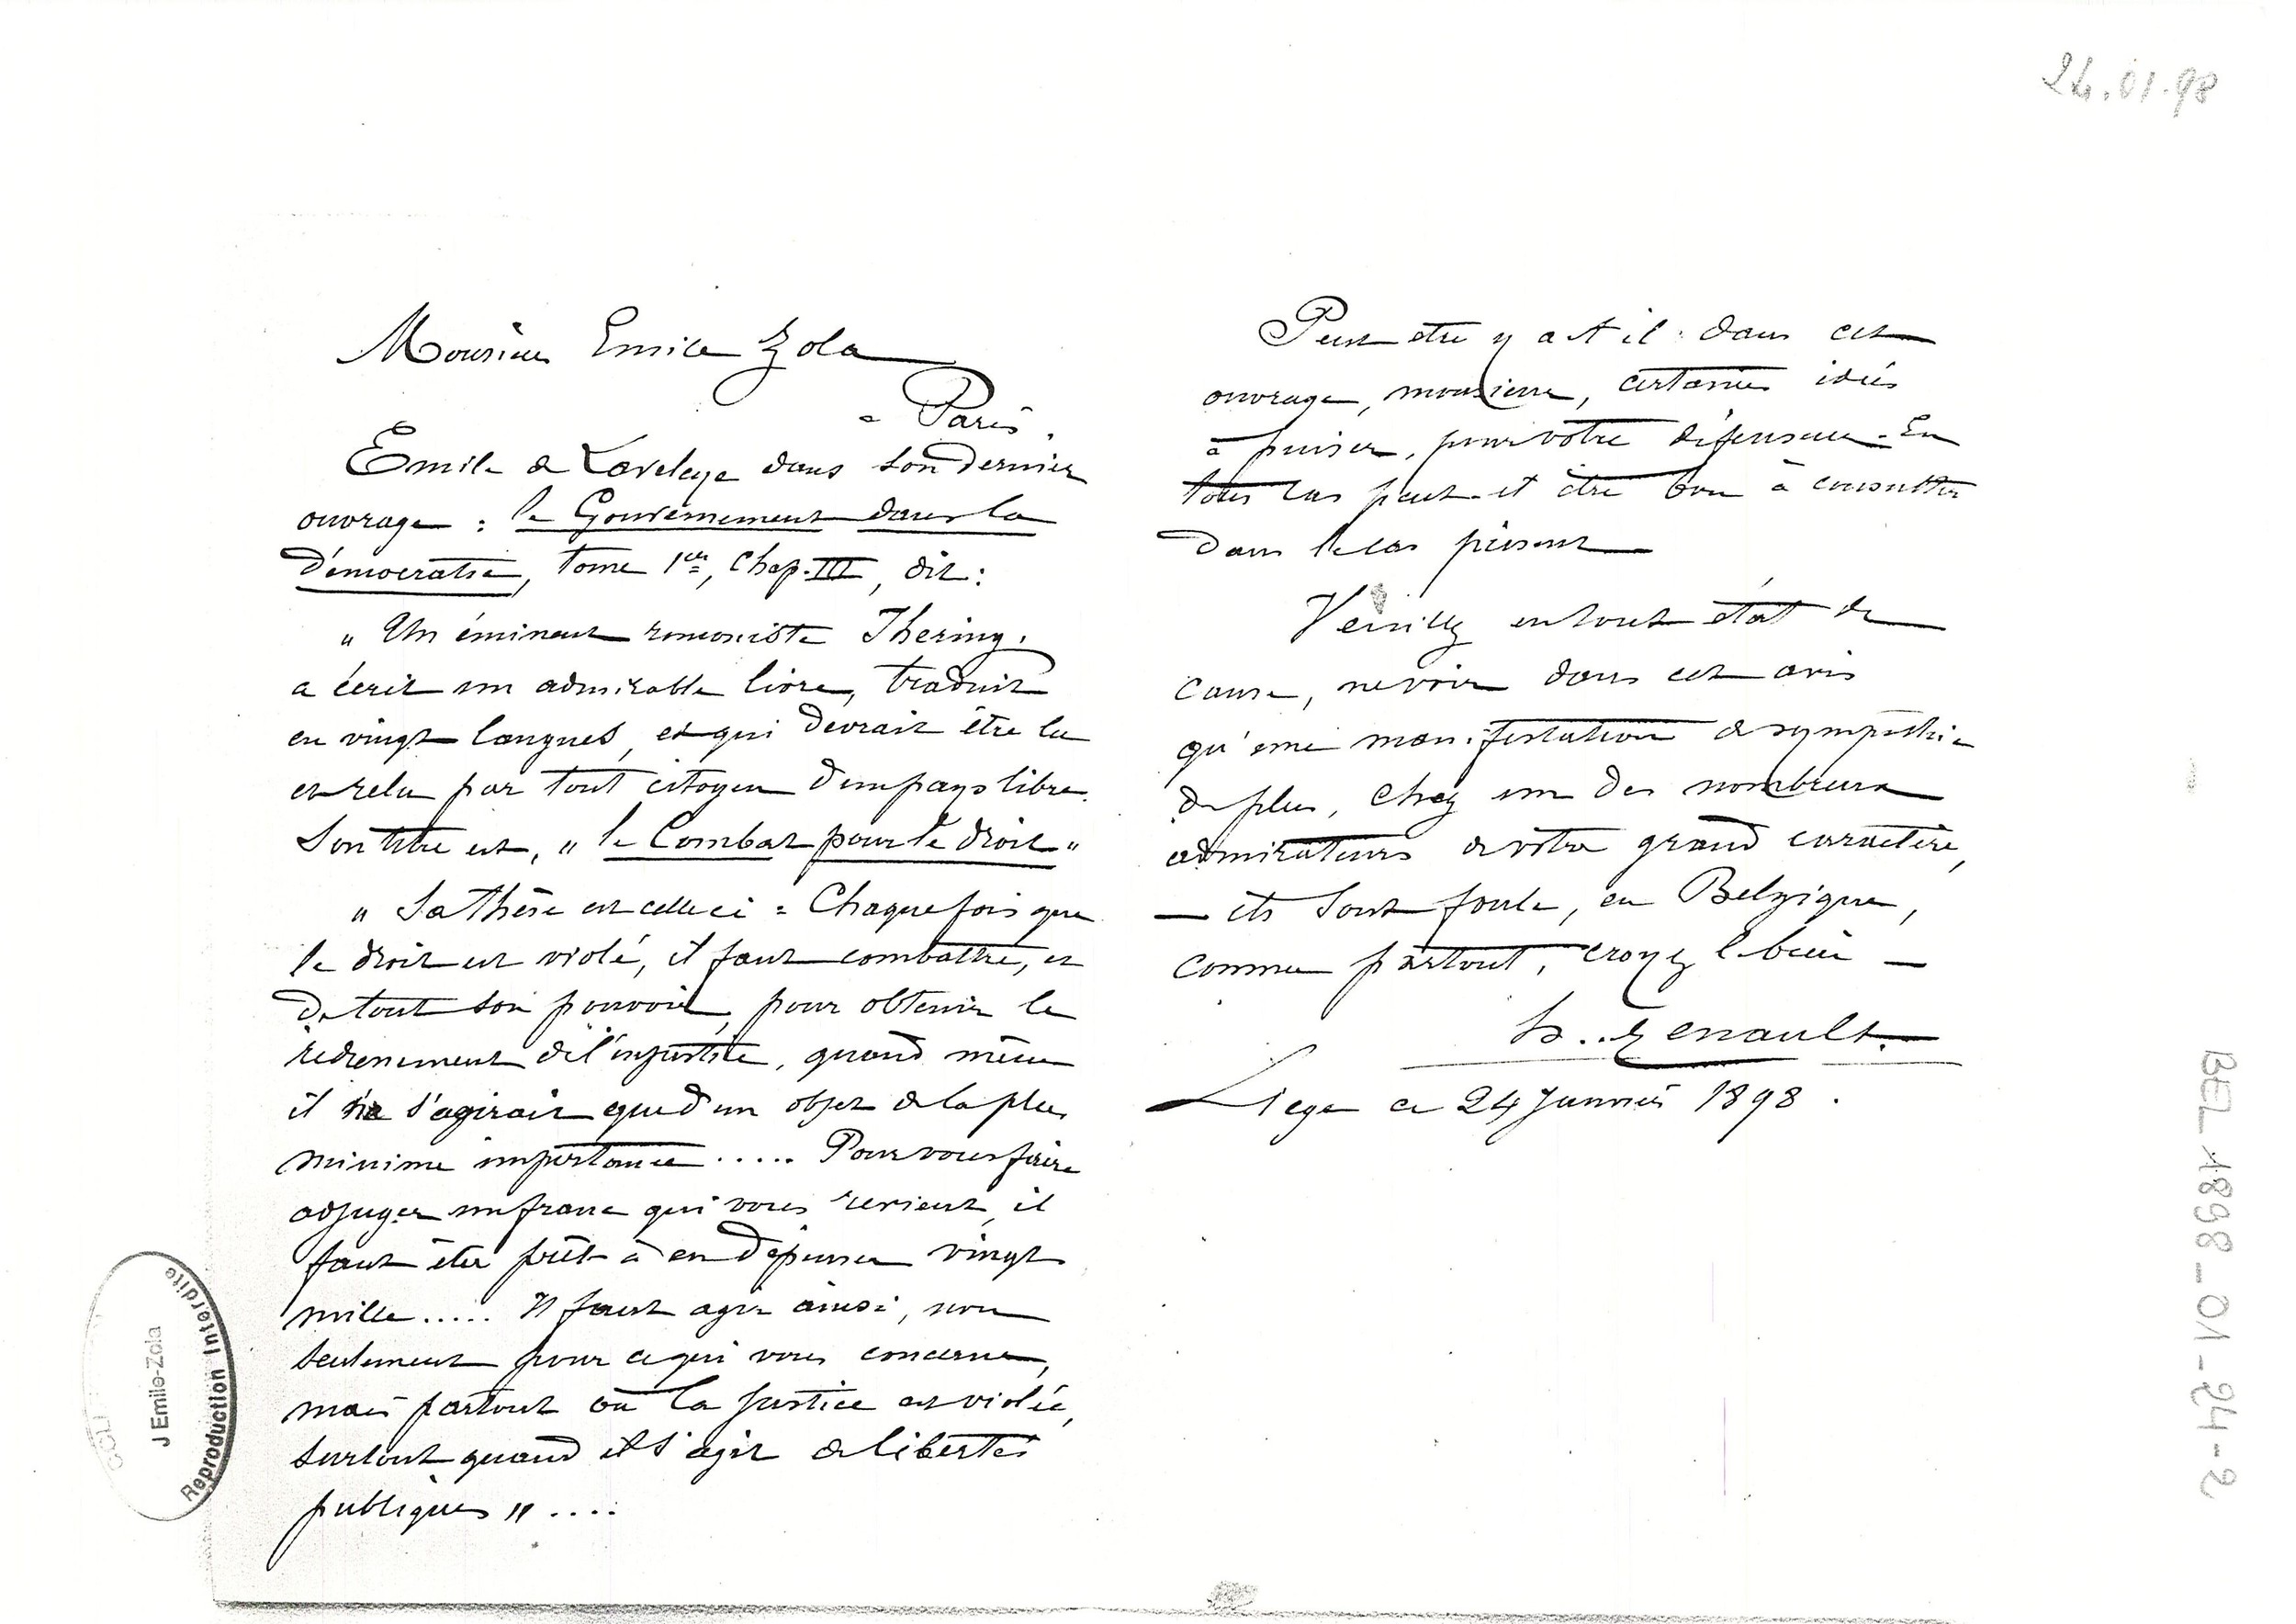 24.01.98
Monsieur Emile Zola
à Paris.
Emile de Laveleye dans son dernier
ouvrage : le Gouvernement dans la
démocratie, tome 1er, Chap. III, dit :
" Un éminent romaniste Jhering,
a écrit un admirable livre, traduit
en vingt langues, et qui devrait être lu
et relu par tout citoyen d'un pays libre.
Son titre est, " le Combat pour le droit "
" Sa thèse est celle ci : Chaque fois que
le droit est violé, il faut combattre, et
de tout son pouvoir, pour obtenir le
redressement de l'injustice, quand même
il ne s'agirait que d'un objet de la plus
minime importance ..... Pour vous faire
adjuger un franc qui vous revient, il
faut être prêt à en dépenser vingt
mille ..... Il faut agir ainsi, non
seulement pour ce qui vous concerne,
mais partout où la justice est violée,
surtout quand il s'agit de libertés
publiques " ....
Peut etre y a t il dans cet
ouvrage, monsieur, certaines idées
à puiser, pour votre défenseur. En
tous cas peut-il être bon à consulter
dans le cas présent
Veuillez en tout état de
cause, ne voir dans cet avis
qu'une manifestation de sympathie
de plus, chez un des nombreux
admirateurs de votre grand caractère,
— ils sont foule, en Belgique,
comme partout, croyez le bien —
Renault.
Liege ce 24 Janvier 1898.
J Emile-Zola
Reproduction Interdite
BEL 1898-01-24-2